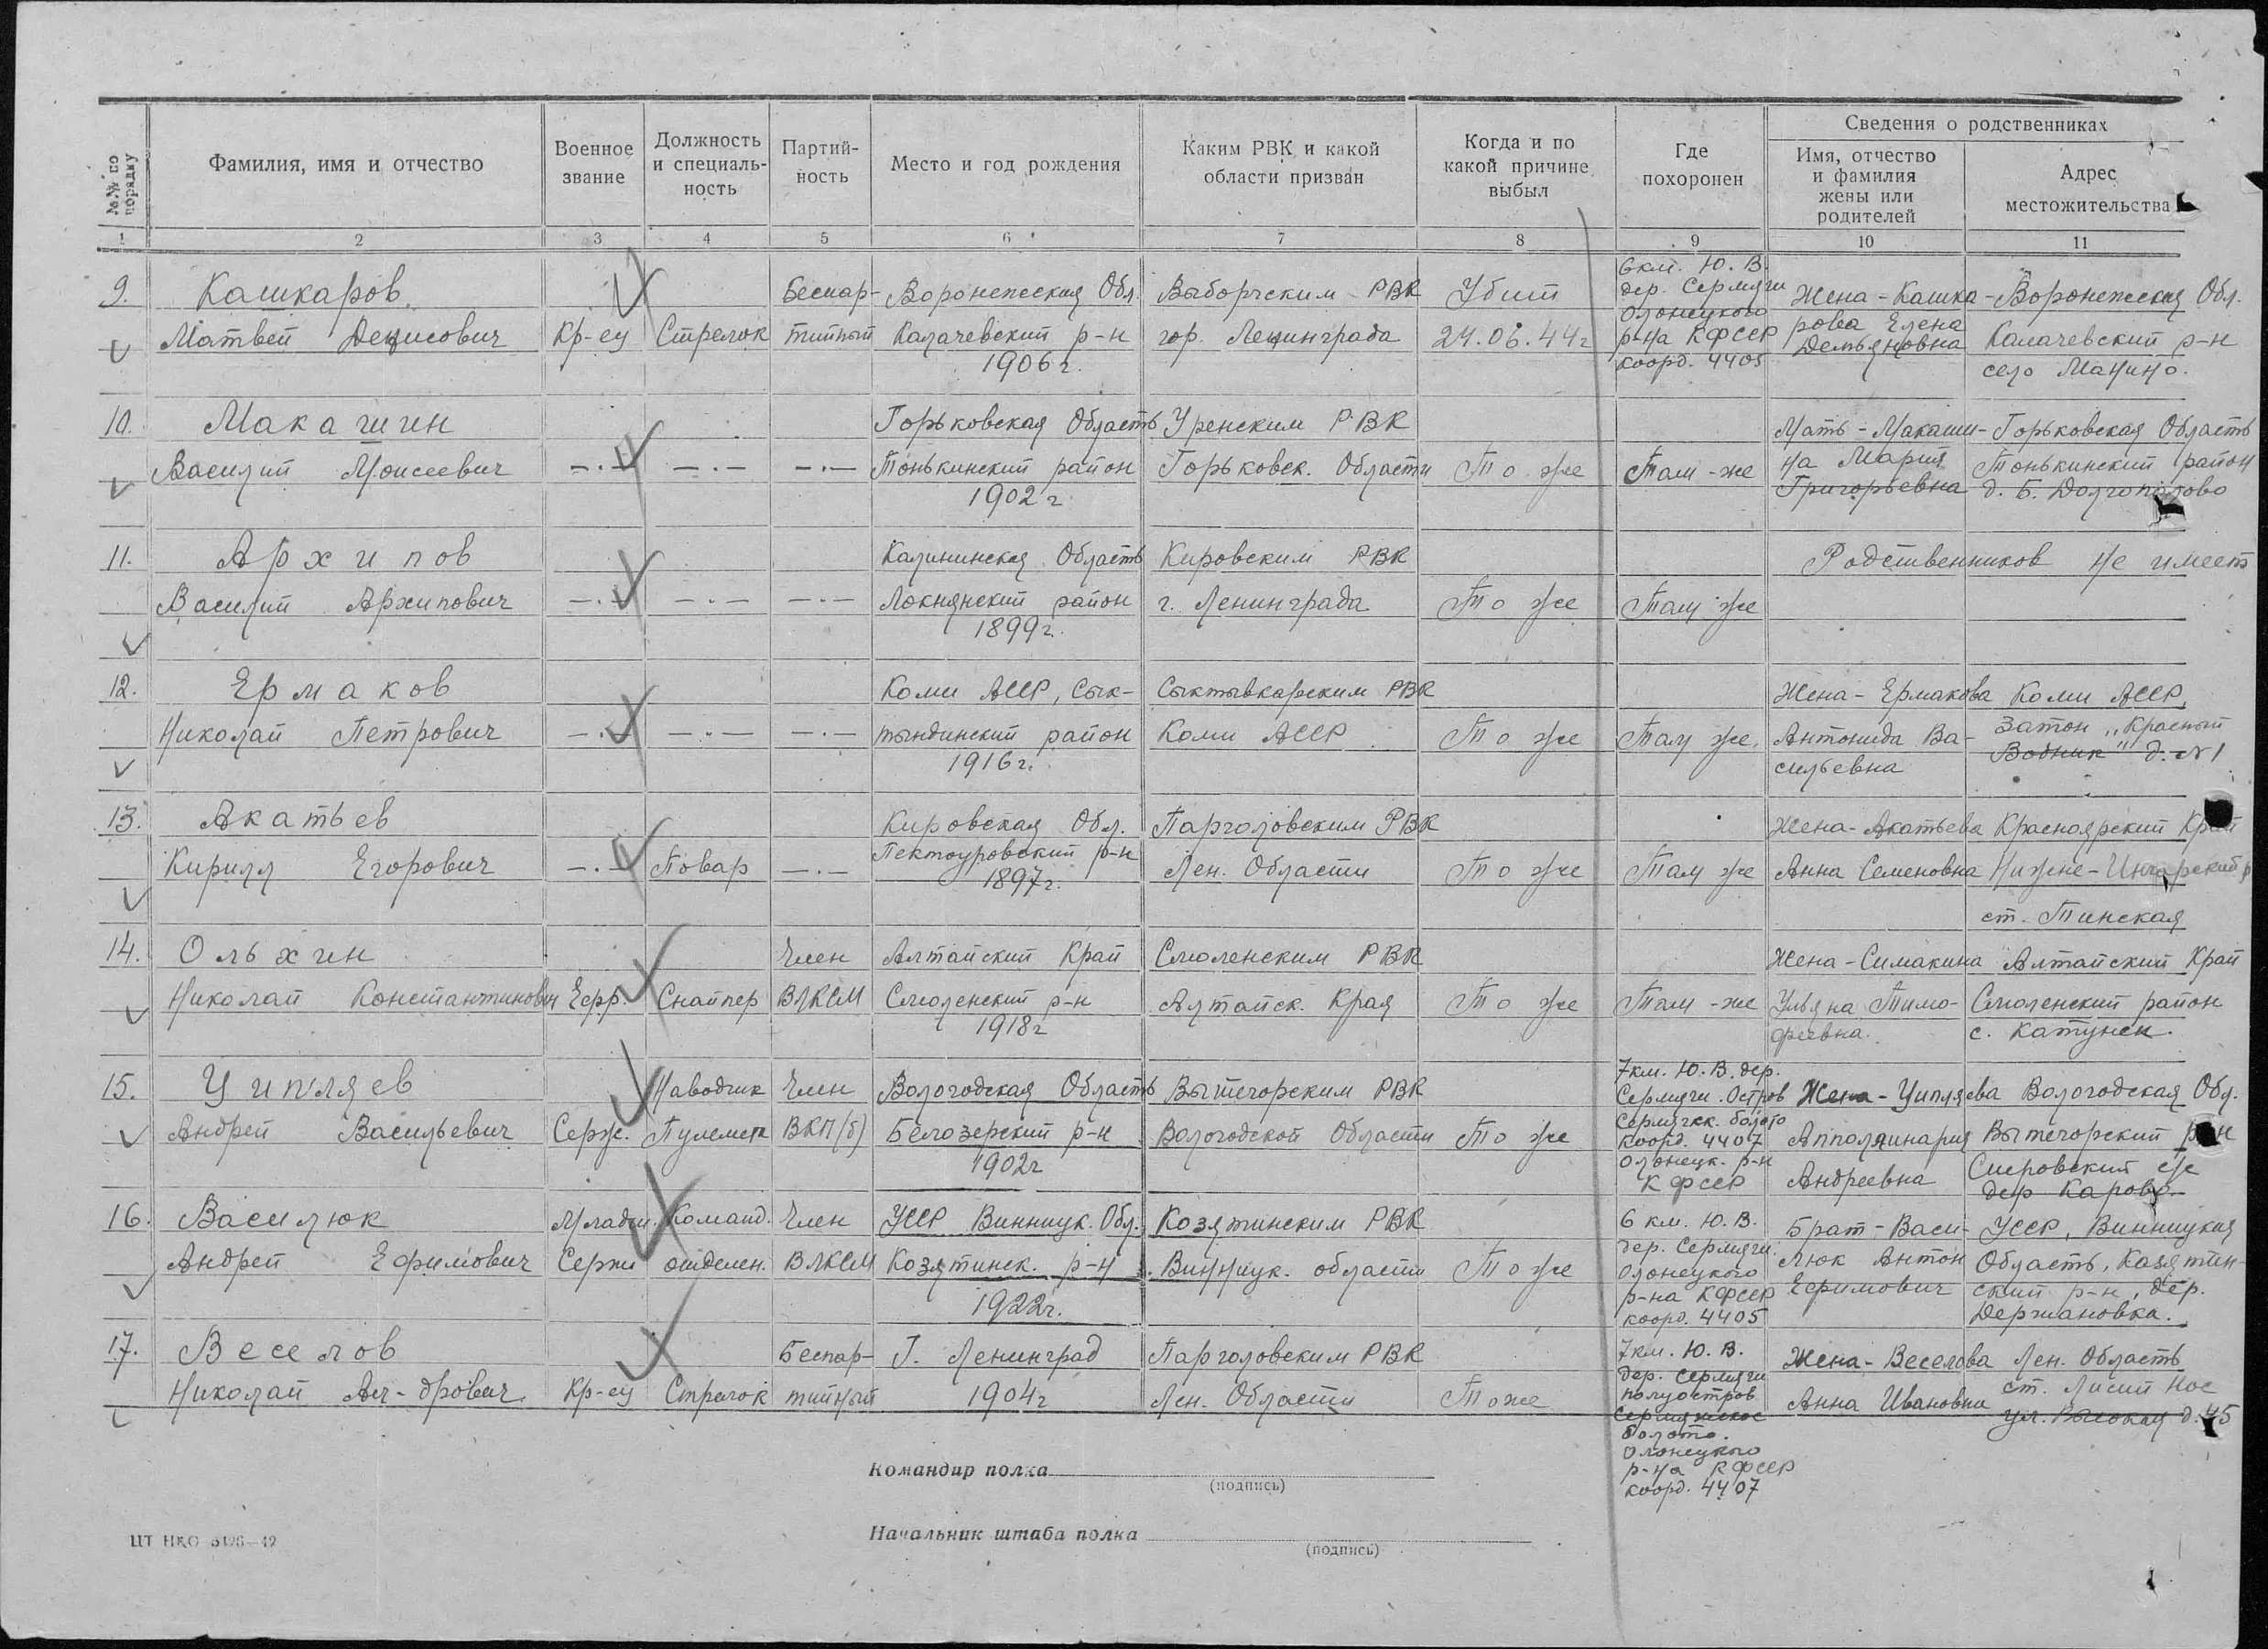 Сведения о родственниках
№№ по порядку
Фамилия, имя и отчество
Военное звание
Должность и специаль-ность
Партий-ность
Место и год рождения
Каким РВК и какой области призван
Когда и по какой причине выбыл
Где похоронен
Имя, отчество и фамилия жены или родителей
Адрес местожительства
1 2 3 4 5 6 7 8 9 10 11
9. Кашкаров Матвей Денисович
Кр-ец
Стрелок
Беспар-тийный
Воронежская Обл. Калачевский р-н 1906 г.
Выборгским РВК гор. Ленинграда
Убит 24.06.44 г
6 км. Ю. В. дер. Сермяги Олонецкого р-на КФССР коорд. 4405
Жена - Кашка-рова Елена Демьяновна
Воронежская Обл. Калачевский р-н село Манино.
10. Макашин Василий Моисеевич
—.— —.— —.—
Горьковская Область Тонькинский район 1902 г
Уренским РВК Горьковск. Области
То же
Там-же
Мать - Макаши-на Мария Григорьевна
Горьковская Область Тонькинский район д. Б. Долгополово
11. Архипов Василий Архипович
—.— —.— —.—
Калининская Область Локнянский район 1899 г.
Кировским РВК г. Ленинграда
То же
Там же
Родственников не имеет
12. Ермаков Николай Петрович
—.— —.— —.—
Коми АССР, Сык-тындинский район 1916 г.
Сыктывкарским РВК Коми АССР
То же
Там же.
Жена - Ермакова Антонида Ва-сильевна
Коми АССР, Затон "Красный Водник" д. №1
13. Акатьев Кирилл Егорович
—.—
Повар
—.—
Кировская Обл. р-н 1897 г.
Парголовским РВК Лен. Области
То же
Там же
Жена - Акатьева Анна Семеновна
Красноярский Край Нижне- ст. Тинская
14. Ольхин Николай Константинович
Ефр.
Снайпер
Член ВЛКСМ
Алтайский Край Смоленский р-н 1918 г
Смоленским РВК Алтайск. Края
То же
Там-же
Жена - Симакина Ульяна Тимо-феевна.
Алтайский Край Смоленский район с. Катунск.
15. Ципляев Андрей Васильевич
Серж.
Наводчик Пулемета
Член ВКП(б)
Вологодская Область Белозерский р-н 1902 г
Вытегорским РВК Вологодской Области
То же
7 км. Ю. В. дер. Сермяги. Остров Сермягск. болото коорд. 4407 Олонецк. р-н КФССР
Жена - Ципляева Апполинария Андреевна
Вологодская Обл. Вытегорский р-н с/с дер Карово.
16. Василюк Андрей Ефимович
Младш. Сержи
Команд. отделен.
Член ВЛКСМ
УССР Винницк. Обл. Козятинск. р-н 1922 г.
Козятинским РВК Винницк. области
То же
6 км. Ю. В. дер. Сермяги. Олонецкого р-на КФССР коорд. 4405
Брат - Васи-люк Антон Ефимович
УССР, Винницкая Область, Казятин-ский р-н, дер. Держановка.
17. Веселов Николай Ал-дрович
Кр-ец
Стрелок
Беспар-тийный
Г. Ленинград 1904 г
Парголовским РВК Лен. Области
Тоже
7 км. Ю. В. дер. Сермяги полуостров Сермяжское болото. Олонецкого р-на КФССР коорд. 4407
Жена - Веселова Анна Ивановна
Лен. Область ст. Лисий Нос ул. Высокая д. 45
Командир полка
(подпись)
Начальник штаба полка
(подпись)
ЦТ НКО